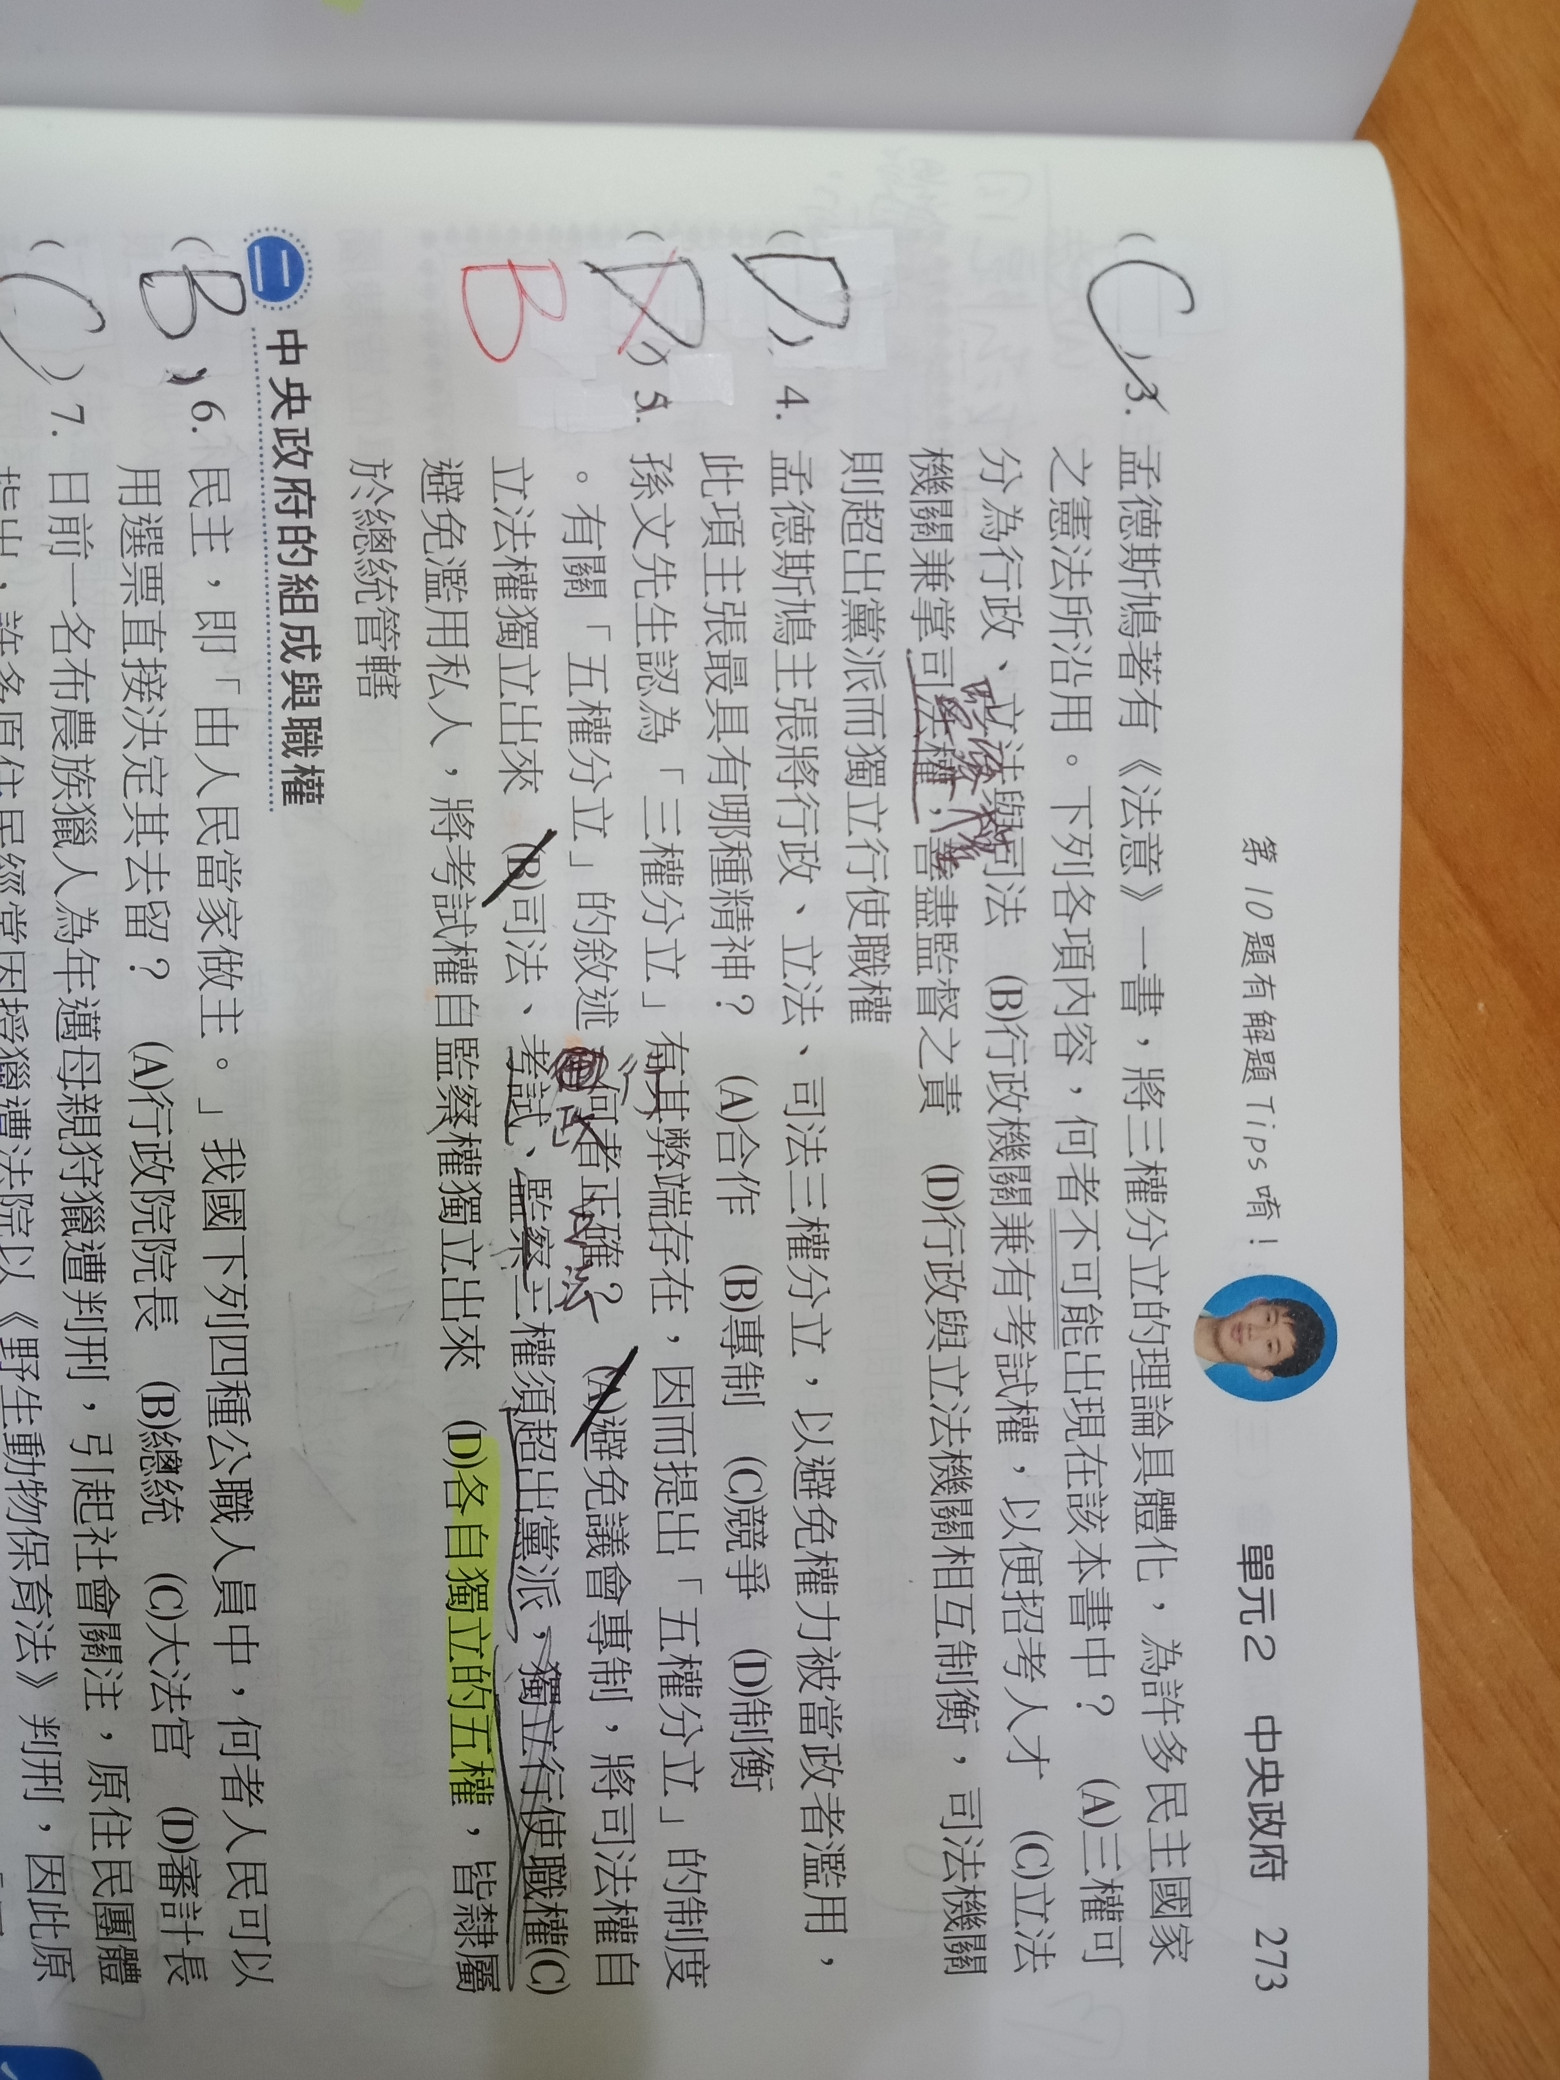 第10題有解題Tips唷！ 單元2 中央政府 273
(C)3. 孟德斯鳩著有《法意》一書，將三權分立的理論具體化，為許多民主國家
之憲法所沿用。下列各項內容，何者不可能出現在該本書中？ (A)三權可
分為行政、立法與司法 (B)行政機關兼有考試權，以便招考人才 (C)立法
機關兼掌司法權，善盡監督之責 (D)行政與立法機關相互制衡，司法機關
則超出黨派而獨立行使職權
(D)4. 孟德斯鳩主張將行政、立法、司法三權分立，以避免權力被當政者濫用，
此項主張最具有哪種精神？ (A)合作 (B)專制 (C)競爭 (D)制衡
(D)5. 孫文先生認為「三權分立」有其弊端存在，因而提出「五權分立」的制度
B
。有關「五權分立」的敘述，何者正確？ (A)避免議會專制，將司法權自
立法權獨立出來 (B)司法、考試、監察三權須超出黨派，獨立行使職權(C)
避免濫用私人，將考試權自監察權獨立出來 (D)各自獨立的五權，皆隸屬
於總統管轄
二 中央政府的組成與職權
(B)6. 民主，即「由人民當家做主。」我國下列四種公職人員中，何者人民可以
用選票直接決定其去留？ (A)行政院院長 (B)總統 (C)大法官 (D)審計長
(C)7. 日前一名布農族獵人為年邁母親狩獵遭判刑，引起社會關注，原住民團體
指出，許多原住民經常因狩獵遭法院以《野生動物保育法》判刑，因此原